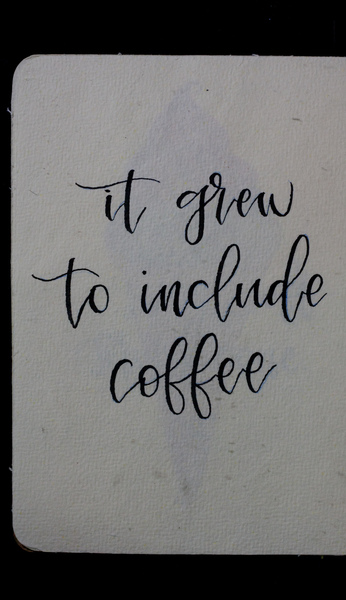 it grew
to include
coffee